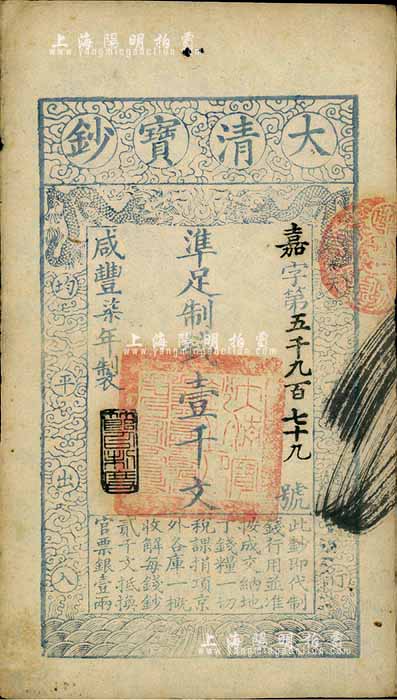 上海陽明拍賣
www.yangmingauction.com
大清寶鈔
嘉字第五千九百七十九號
準足制錢壹千文
咸豐柒年製
均平出入
此鈔即代制
錢行用並准
按成交納地
丁錢糧一切
稅課捐項京
外各庫一概
收解每錢鈔
貳千文抵換
官票銀壹兩
上海陽明拍賣
www.yangmingauction.com
上海陽明拍賣
www.yangmingauction.com